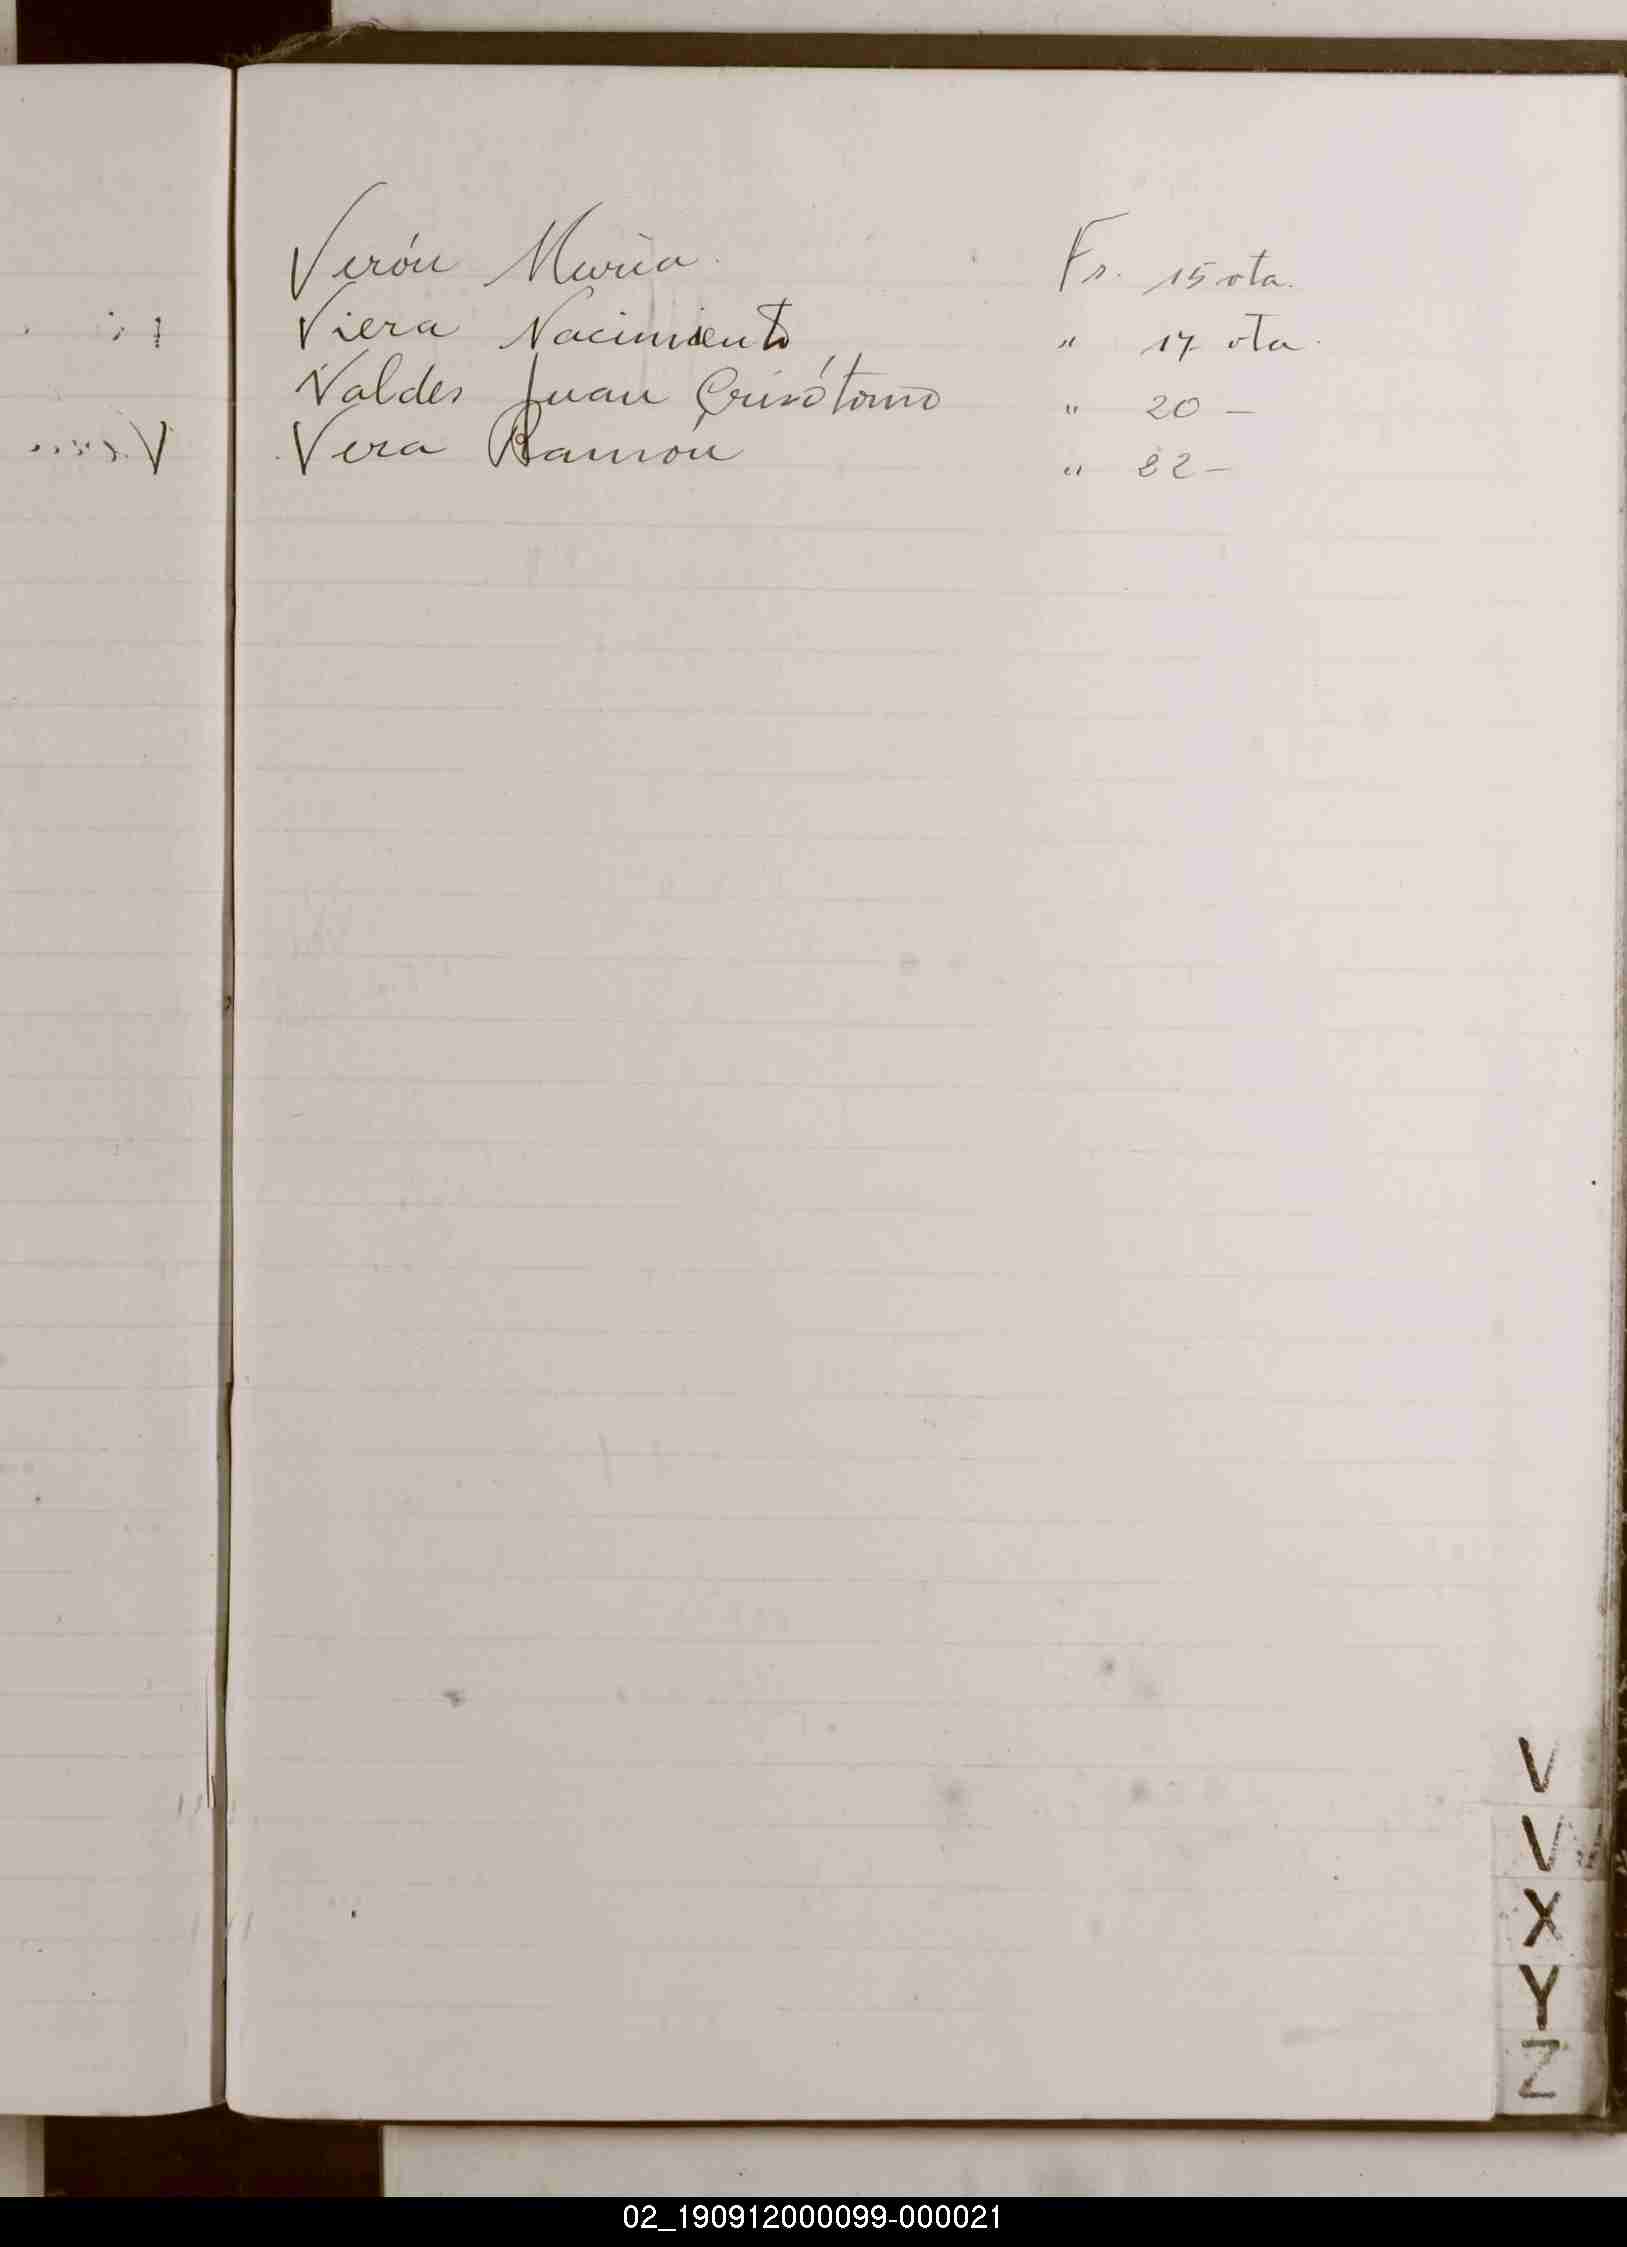 Verón María Fs. 15 vta.
Viera Nacimiento " 17 vta.
Valdes Juan Crisótomo " 20 –
Vera Ramón " 22 –
V
V
X
Y
Z
02_190912000099-000021